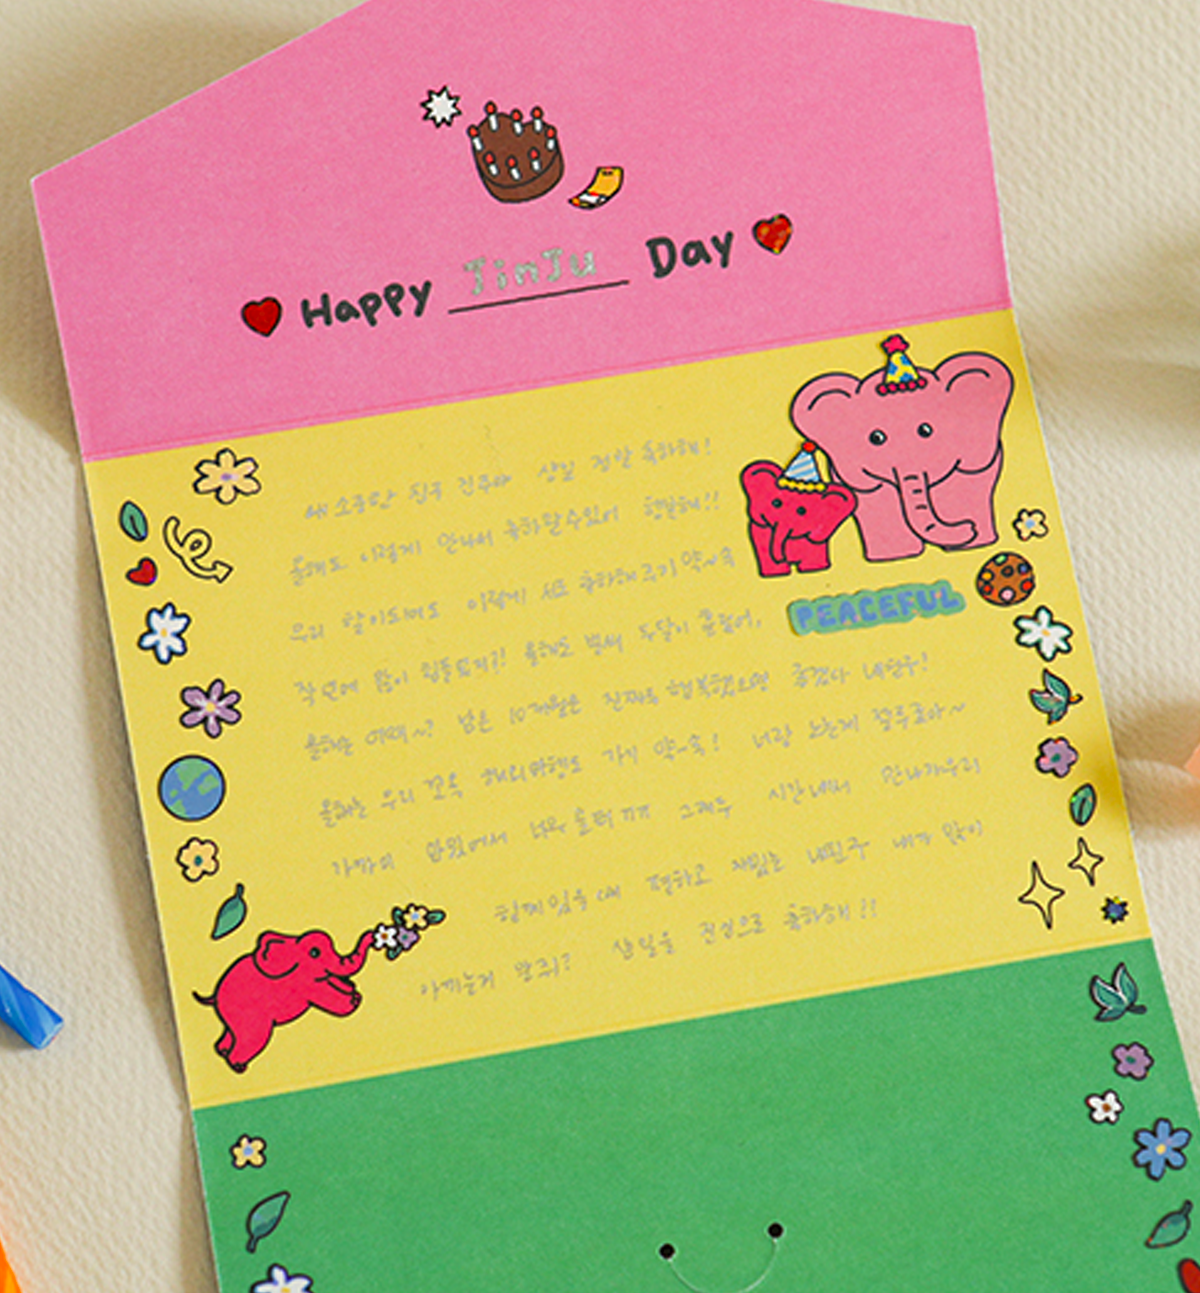 Happy JinJu Day
내 소중한 친구 진주야 생일 정말 축하해!
올해도 이렇게 만나서 축하할수있어 행복해!!
우리 할머니되어도 이렇게 서로 축하해주기 약~속
PEACEFUL
작년에 많이 힘들었지?! 올해도 벌써 두달이 흘렀어,
올해는 어때~? 남은 10개월은 진짜루 행복했으면 좋겠다 내친구!
올해는 우리 꼬옥 해외여행도 가기 약~속! 너랑 노는게 잴루좋아~
가까이 있어서 너무 슬퍼 ㅠㅠ 그래두 시간내서 만나자우리
함께있을때 편하고 재밌는 내친구 내가 많이
아끼는거 알쥐? 생일을 진심으로 축하해!!